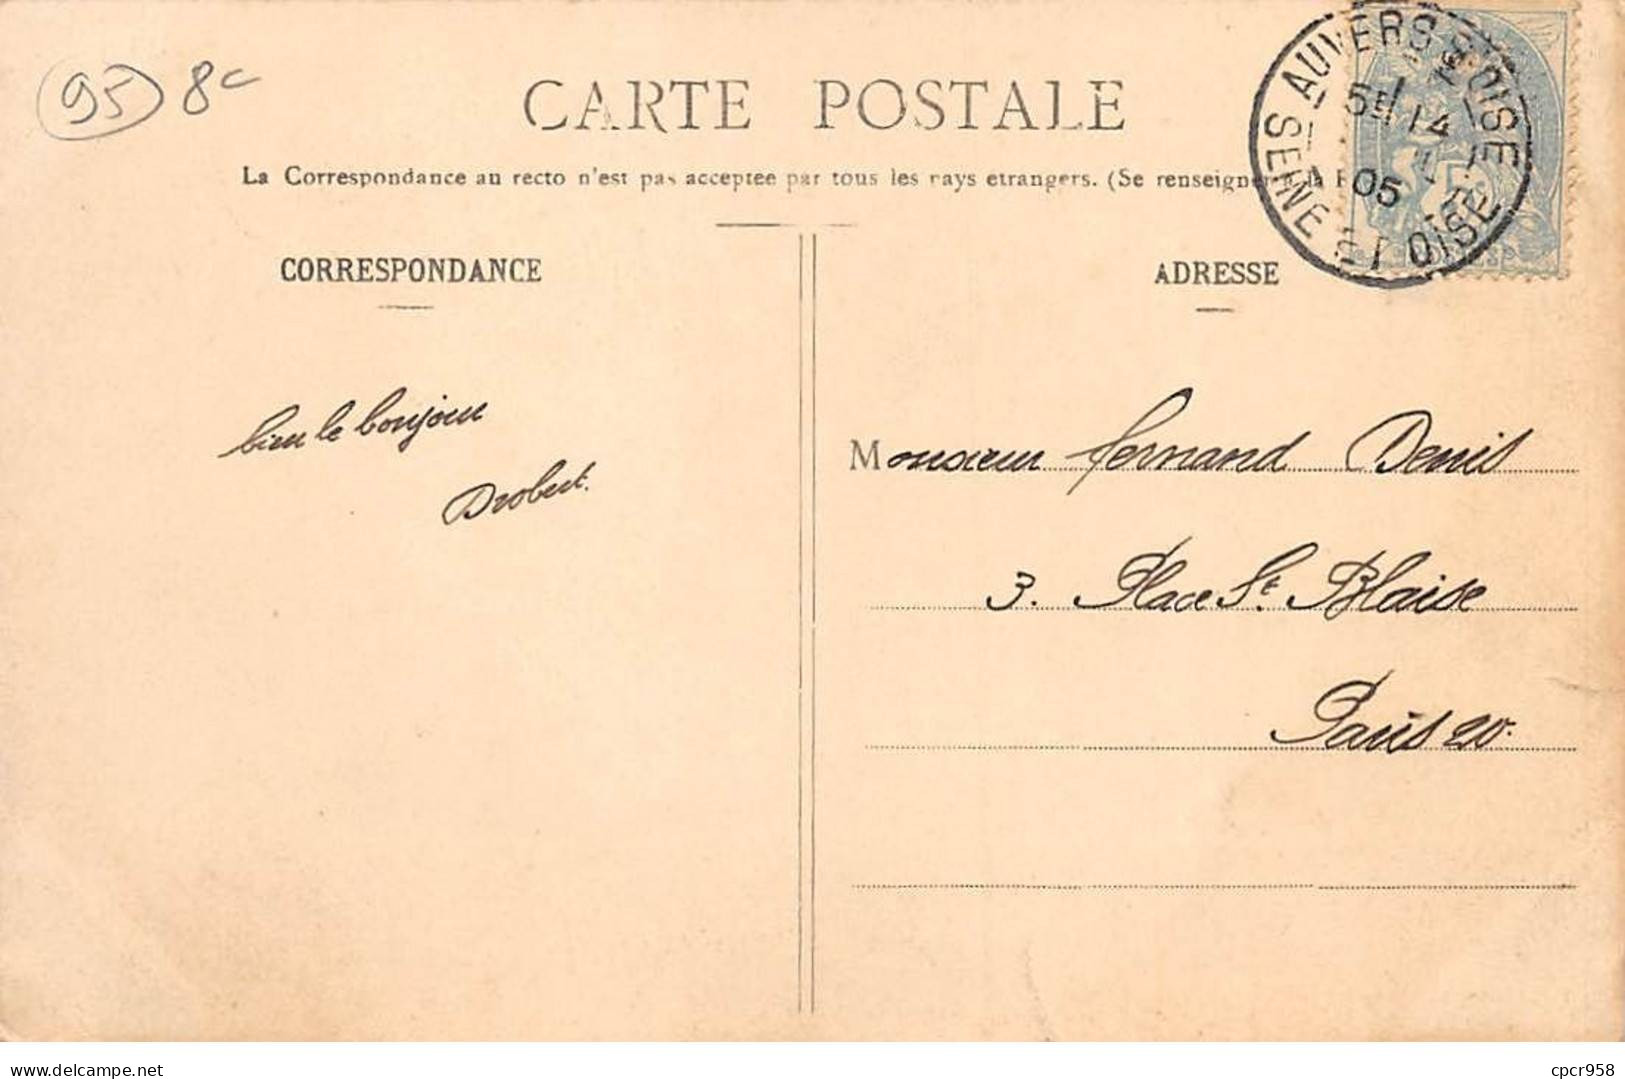 95 8c
CARTE POSTALE
La Correspondance au recto n'est pas acceptee par tous les pays etrangers. (Se renseigner à la
SEINE ET OISE AUVERS S OISE
5E 14
05
CORRESPONDANCE
bien le bonjour
Drobert.
ADRESSE
Monsieur fernand Denis
3. Place St. Blaise
Paris 20.
www.delcampe.net
cpcr958